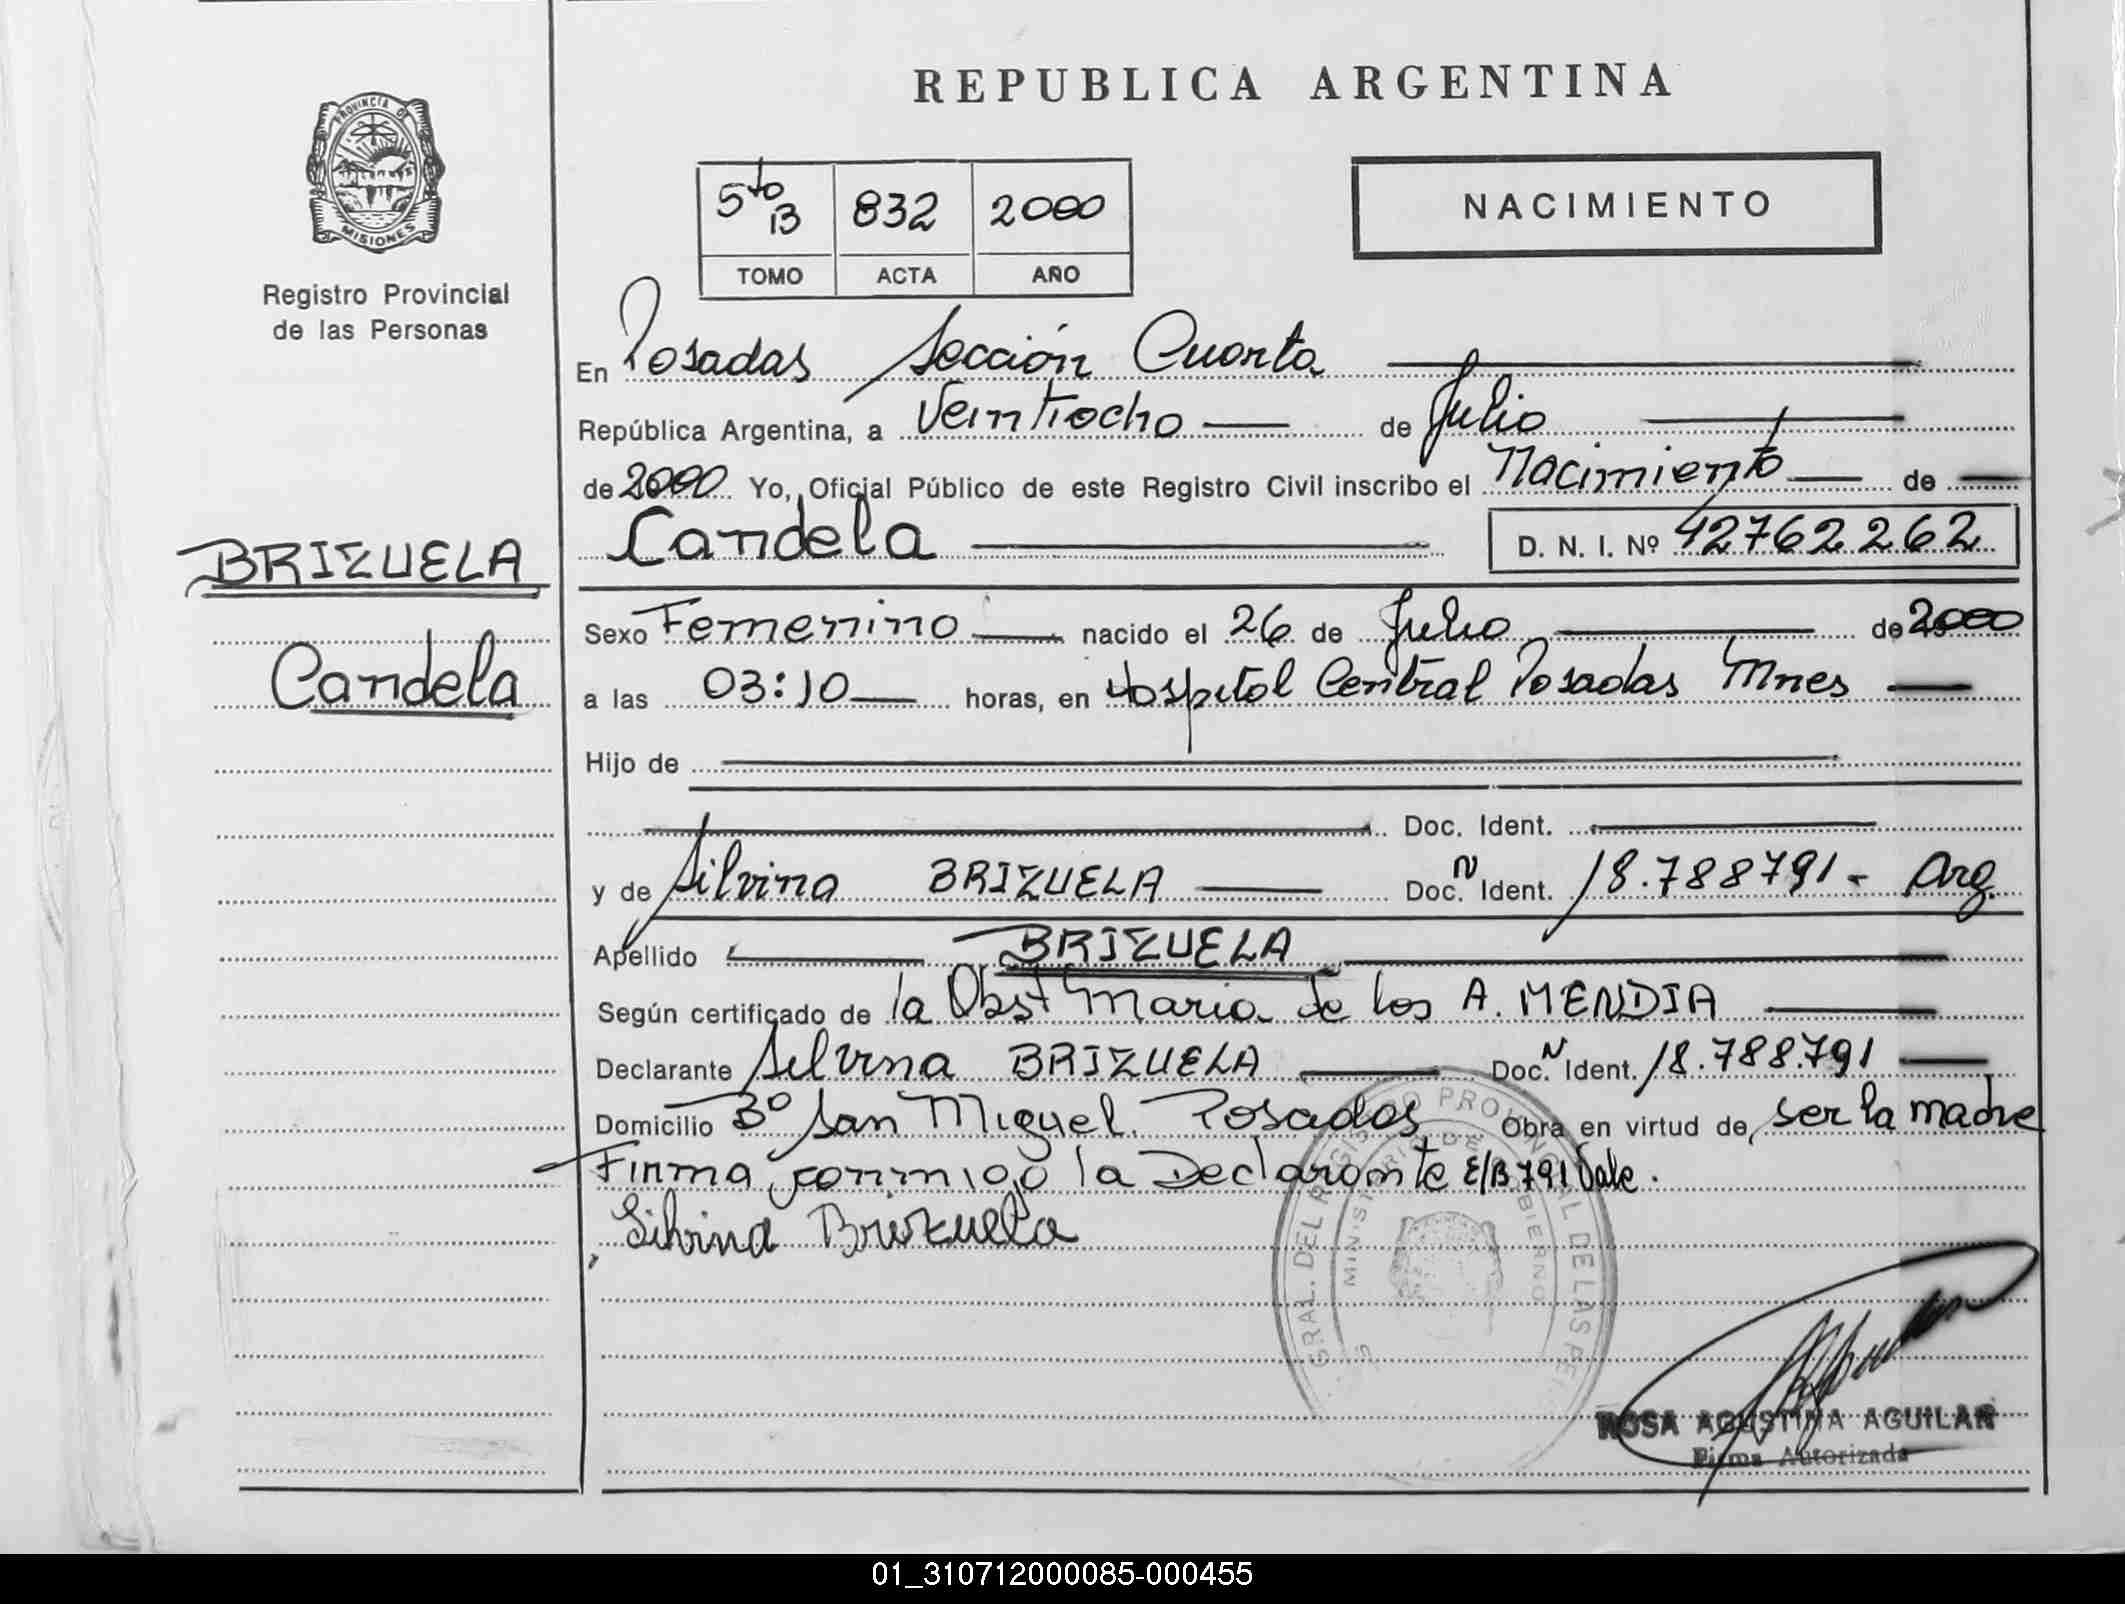 REPUBLICA ARGENTINA
PROVINCIA DE
MISIONES
Registro Provincial
de las Personas
5to B 832 2000
TOMO ACTA AÑO
NACIMIENTO
En Posadas Sección Cuarta
República Argentina, a Veintiocho de Julio
de 2000 Yo, Oficial Público de este Registro Civil inscribo el Nacimiento de
Candela D. N. I. Nº 42762262
BRIZUELA
Candela
Sexo Femenino nacido el 26 de Julio de 2000
a las 03:10 horas, en Hospital Central Posadas Mnes
Hijo de
Doc. Ident.
y de Silvina BRIZUELA Doc. N Ident. 18.788791 - Arg.
Apellido BRIZUELA
Según certificado de la Obst Maria de los A. MENDIA
Declarante Silvina BRIZUELA Doc. N Ident. 18.788.791
Domicilio Bº San Miguel. Posadas Obra en virtud de ser la madre
Firma conmigo la Declarante E/B 791 Vale.
Silvina Brizuela
GRAL. DEL REGISTRO PROVINCIAL DE LAS PE
ROSA AGUSTINA AGUILAR
Firma Autorizada
01_310712000085-000455